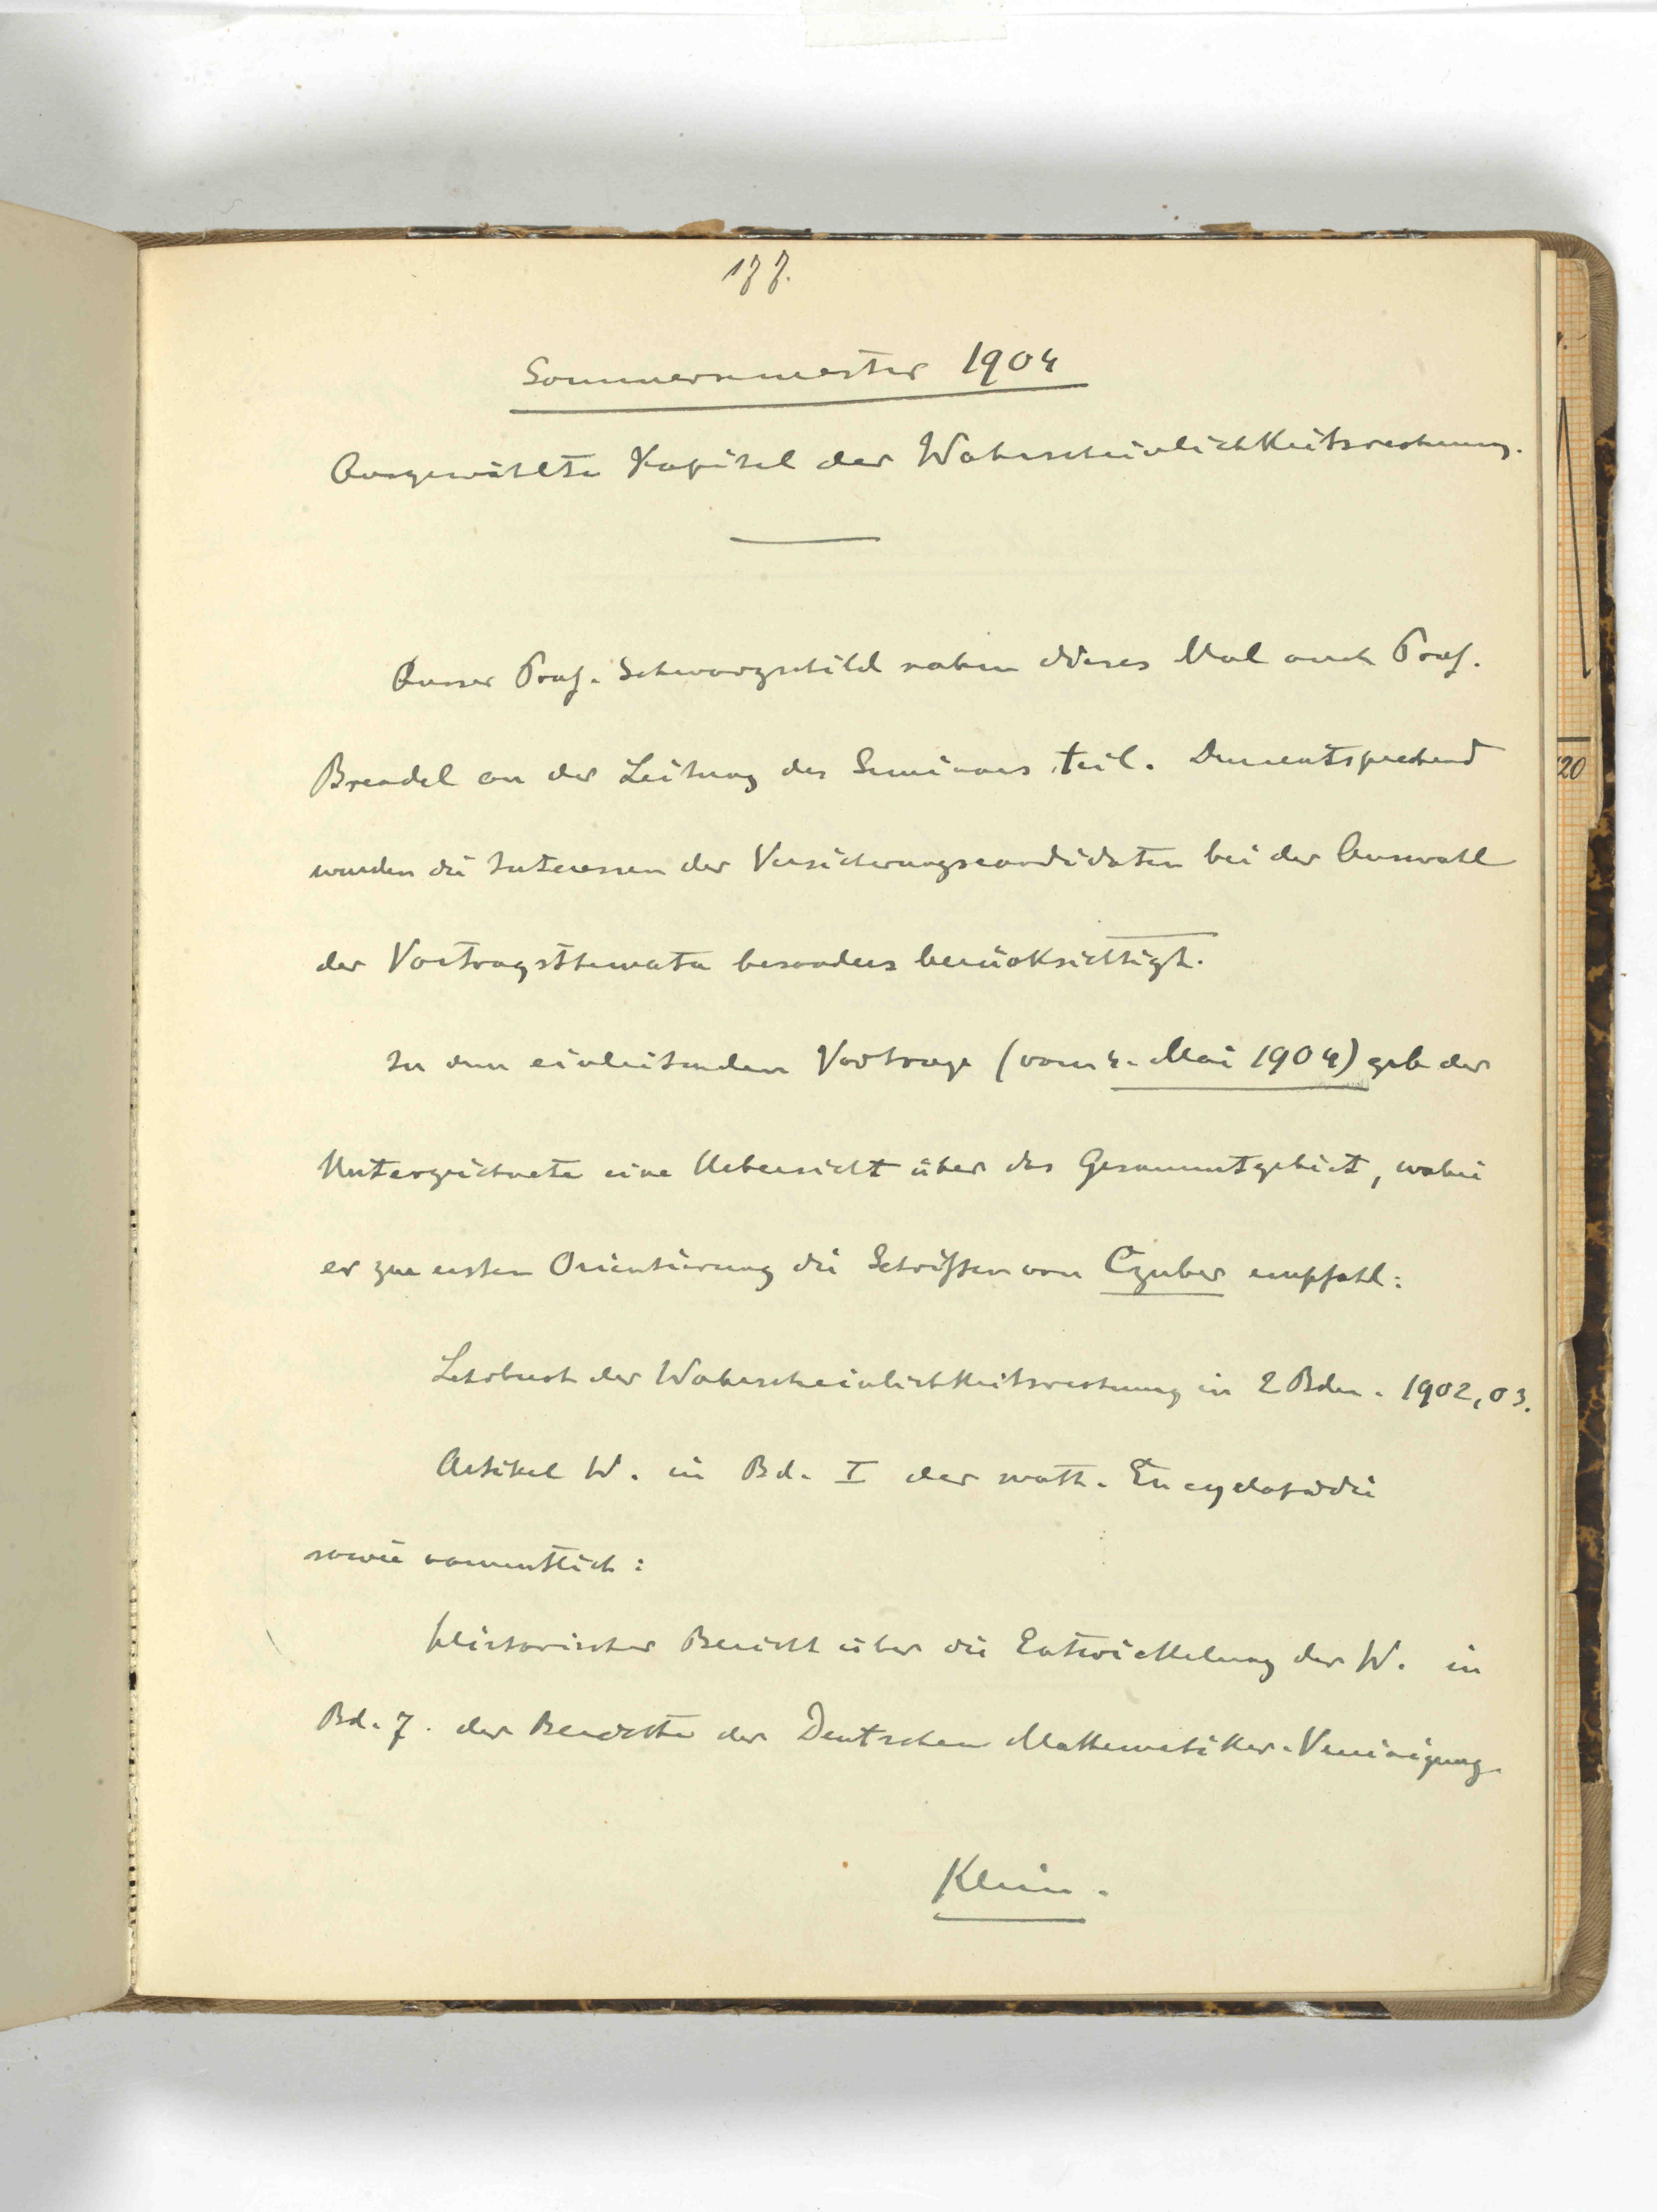 177.
Sommersemester 1904
Ausgewählte Kapitel der Wahrscheinlichkeitsrechnung.
Ausser Prof. Schwarzschild nahm dieses Mal auch Prof.
Brendel an der Leitung des Seminars teil. Dementsprechend
wurden die Interessen der Versicherungscandidaten bei der Auswahl
der Vortragsthemata besonders berücksichtigt.
In dem einleitenden Vortrage (vom 4. Mai 1904) gab der
Unterzeichnete eine Uebersicht über das Gesammtgebiet, wobei
er zur ersten Orientierung die Schriften von Czuber empfahl:
Lehrbuch der Wahrscheinlichkeitsrechnung in 2 Bden. 1902,03.
Artikel W. in Bd. I der math. Encyclopädie
sowie namentlich:
Historischer Bericht über die Entwickelung der W. in
Bd. 7. der Berichte der Deutschen Mathematiker-Vereinigung.
Klein.
20